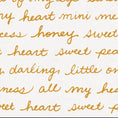 my heart mini me
cess honey sweet
heart sweet pea
darling little on
ness all my hea
weet heart sweet p